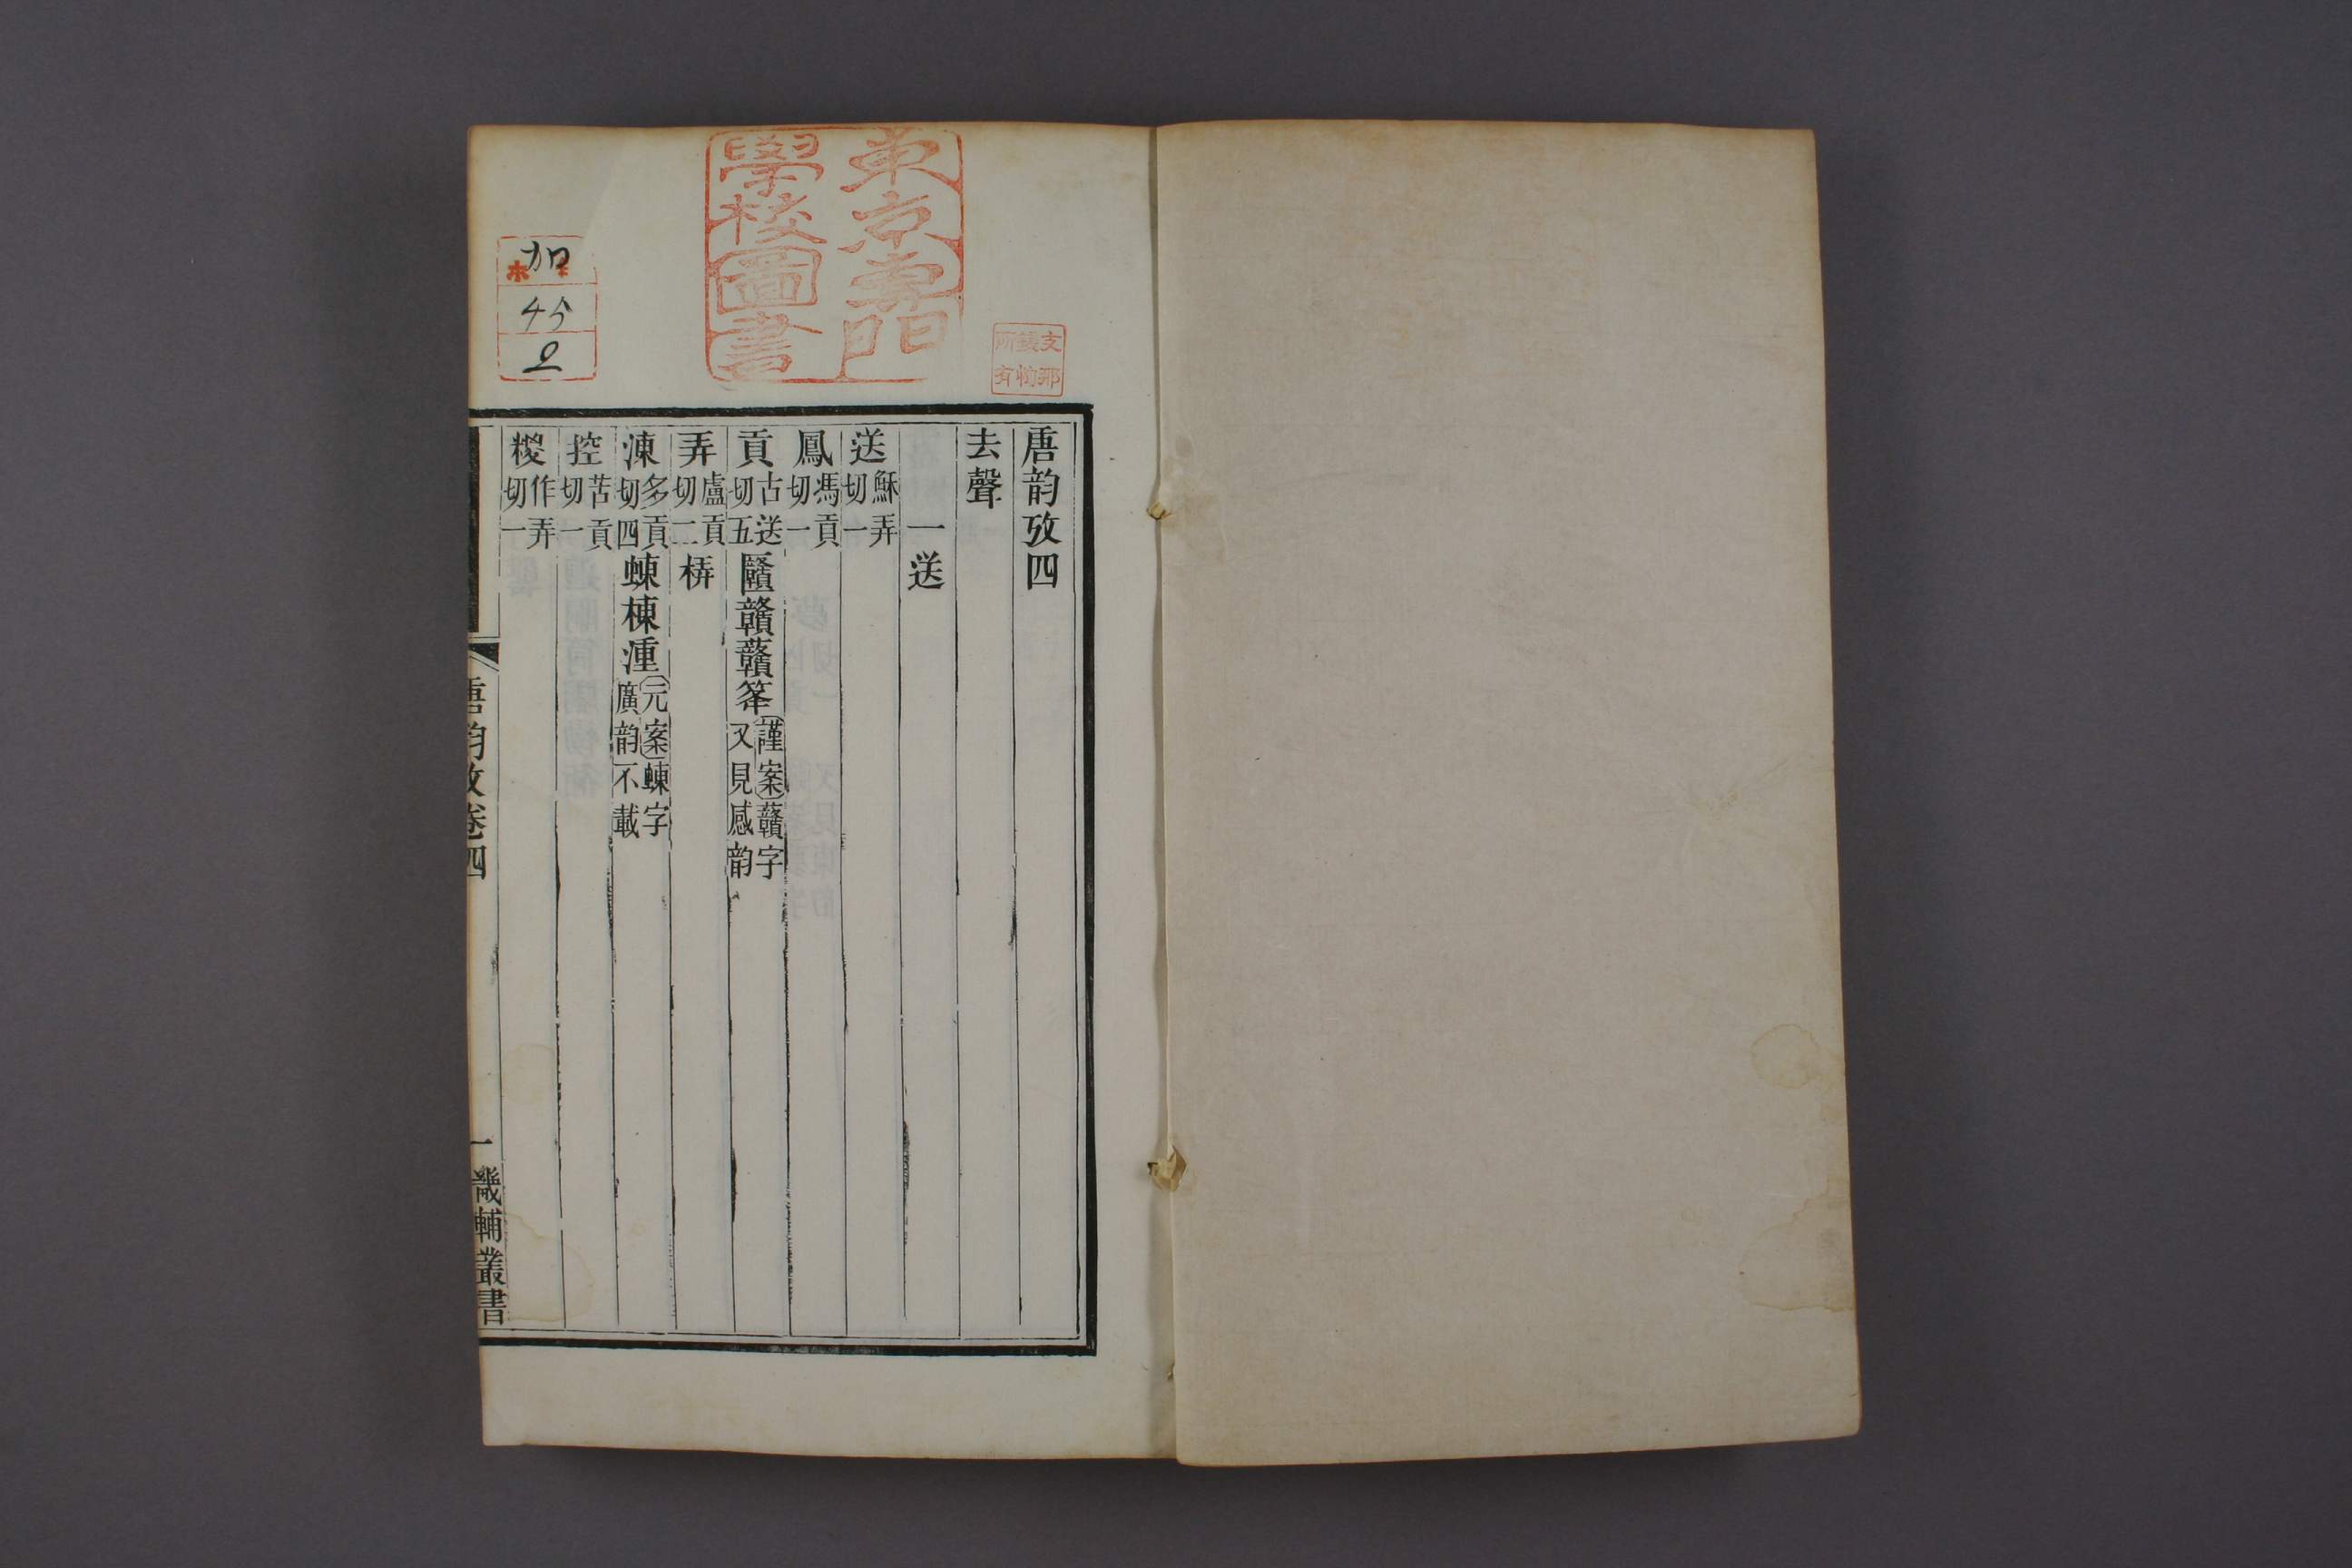 唐韵攷四
去聲
一送
送穌弄切一
鳳馮貢切一
貢古送切五匵贛灨筀謹案灨字又見感韵
弄盧貢切二梇
涷多貢切四蝀棟湩元案蝀字廣韵不載
控苦貢切一
糉作弄切一
唐韵攷卷四
一
畿輔叢書
東京專門
學校圖書
支那
錢恂
所有
加
45
2